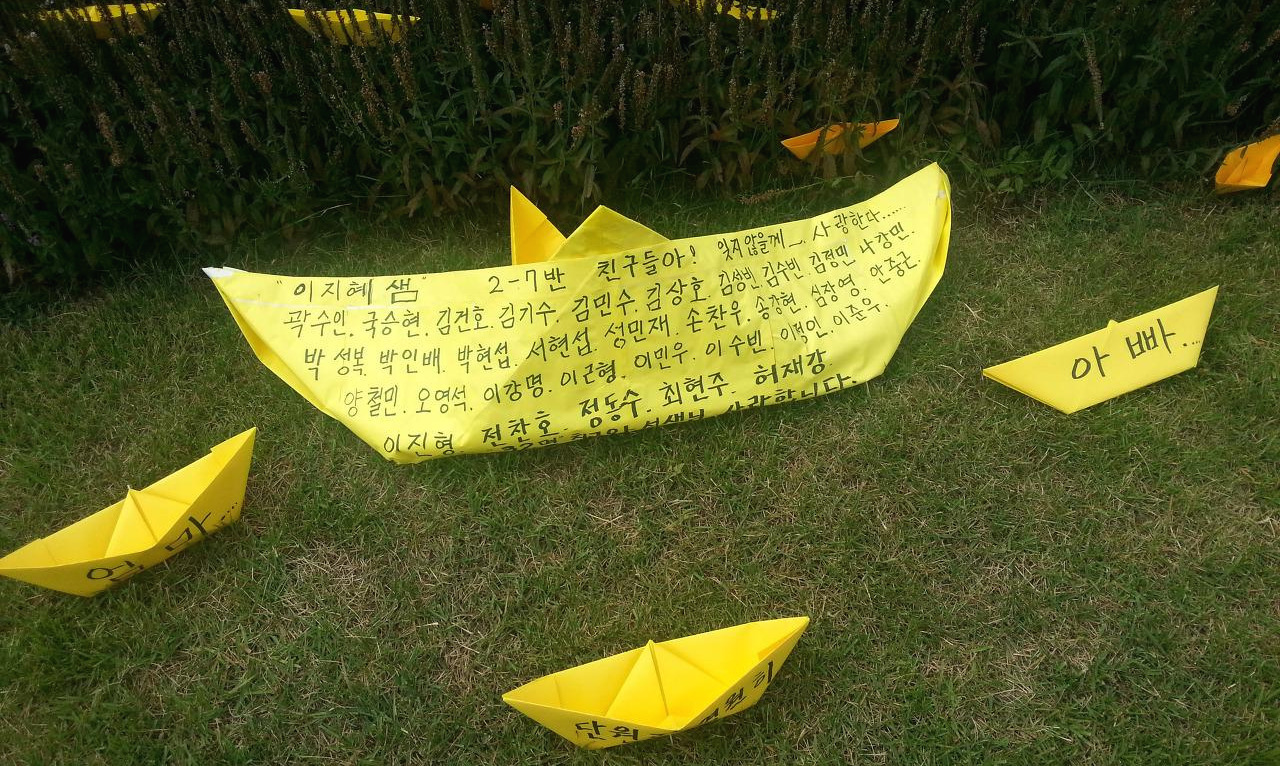 "이지혜 샘" 2-7반 친구들아! 잊지 않을께~. 사랑한다......
곽수인. 국승현. 김건호. 김기수. 김민수. 김상호. 김성빈. 김수빈. 김정민. 나강민.
박성복. 박인배. 박현섭. 서현섭. 성민재. 손찬우. 송강현. 심장영. 안중근.
양철민. 오영석. 이강명. 이근형. 이민우. 이수빈. 이정인. 이준우.
이진형. 전찬호. 정동수. 최현주. 허재강
선생님 사랑합니다.
아빠...
엄마...
단원